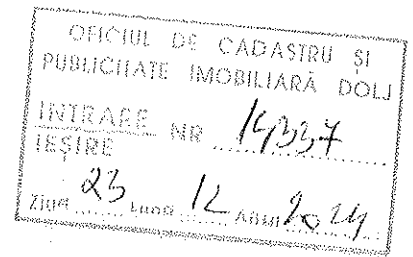 OFICIUL DE CADASTRU ȘI
PUBLICITATE IMOBILIARĂ DOLJ
INTRARE NR 14337
IEȘIRE
Ziua 23 Luna 12 Anul 2024